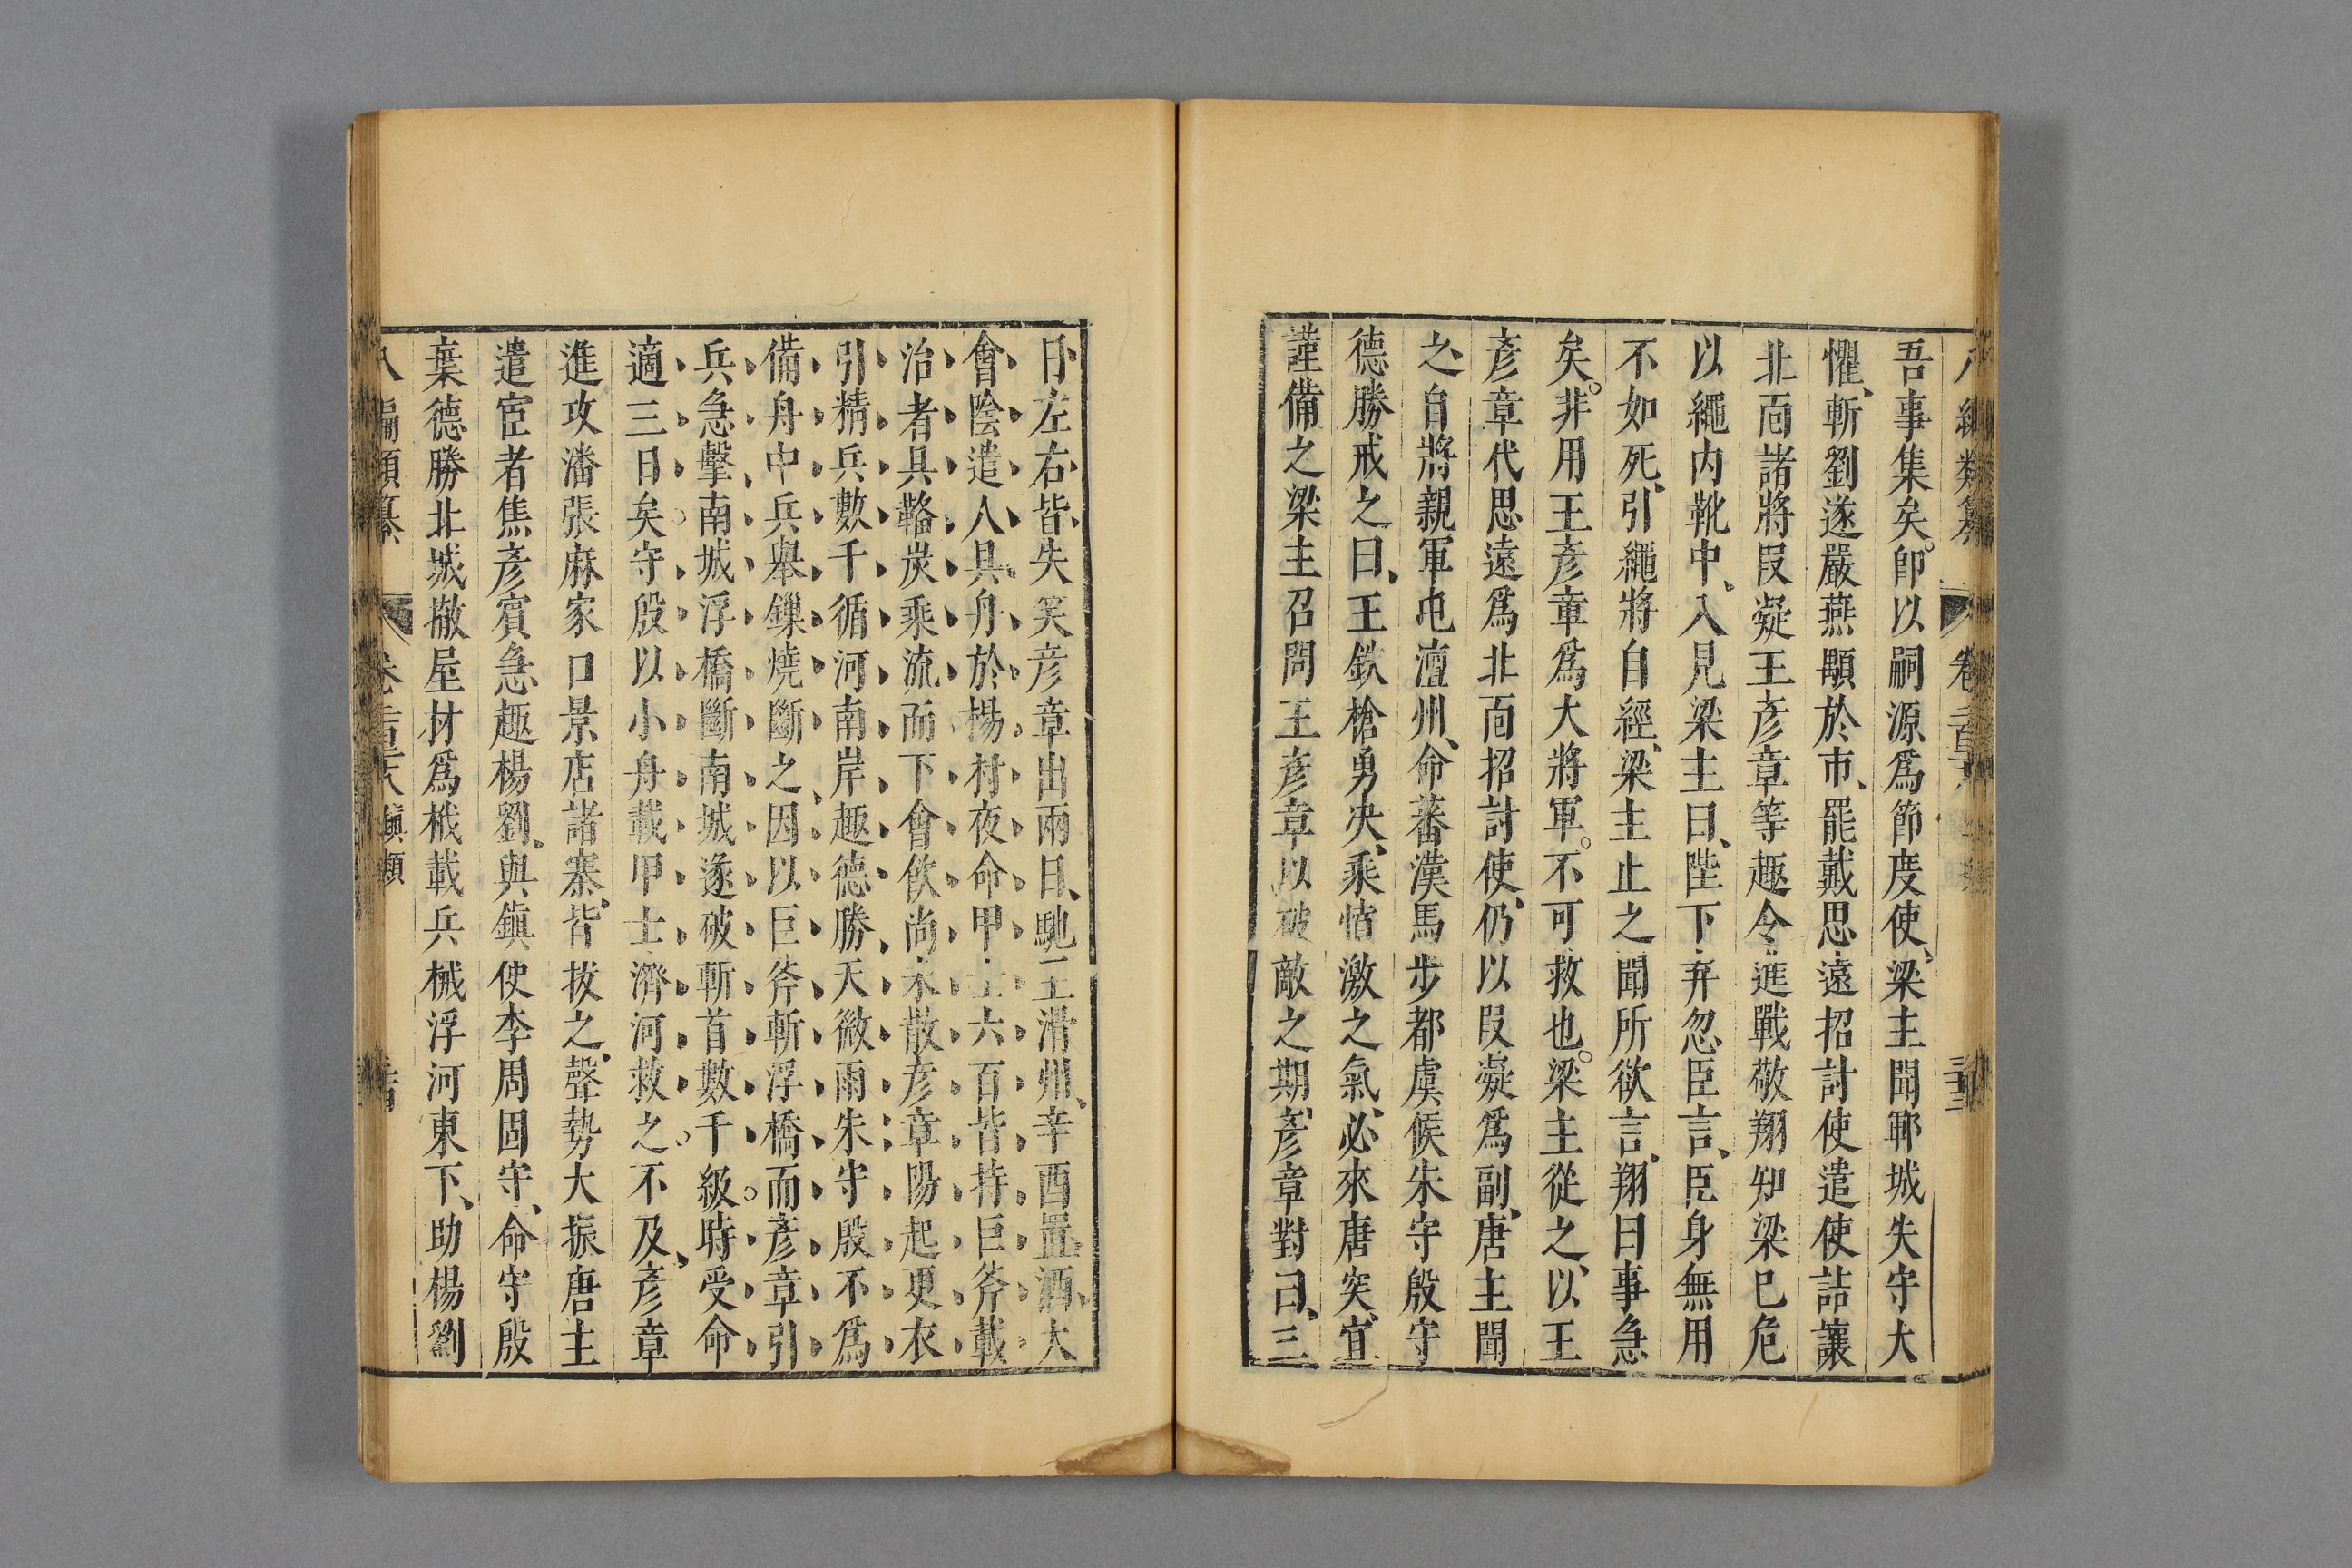 吾事集矣。卽以嗣源爲節度使、梁主聞鄆城失守大
懼、斬劉遂嚴燕顒於市、罷戴思遠招討使遣使詰讓
北面諸將段凝王彥章等趣令進戰敬翔知梁已危
以繩内靴中、入見梁主曰、陛下弃忽臣言、臣身無用
不如死、引繩將自經、梁主止之聞所欲言、翔曰事急
矣。非用王彥章爲大將軍。不可救也。梁主從之、以王
彥章代思遠爲北面招討使、仍以段凝爲副、唐主聞
之、自將親軍屯澶州、命蕃漢馬步都虞候朱守殷守
德勝戒之曰、王鉄槍勇决、乘憤激之氣、必來唐突、宜
謹備之梁主召問王彥章以破敵之期、彥章對曰、三
日、左右皆失笑彥章出兩日、馳至滑州、辛酉置酒、大
會、陰遣人具舟於楊村夜命甲士六百皆持巨斧載
治者具鞴炭乘流而下會飲尚未散彥章陽起更衣
引精兵數千循河南岸趣德勝、天微雨朱守殷不爲
備舟中兵舉鏁燒斷之、因以巨斧斬浮橋而彥章引
兵急擊南城浮橋斷南城遂破斬首數千級。時受命
適三日矣。守殷以小舟載甲士濟河救之。不及、彥章
進攻潘張麻家口景店諸寨、皆拔之、聲勢大振唐主
遣宦者焦彥賓急趣楊劉、與鎮使李周固守、命守殷
葉德勝北城撤屋材爲栰載兵械浮河東下、助楊劉